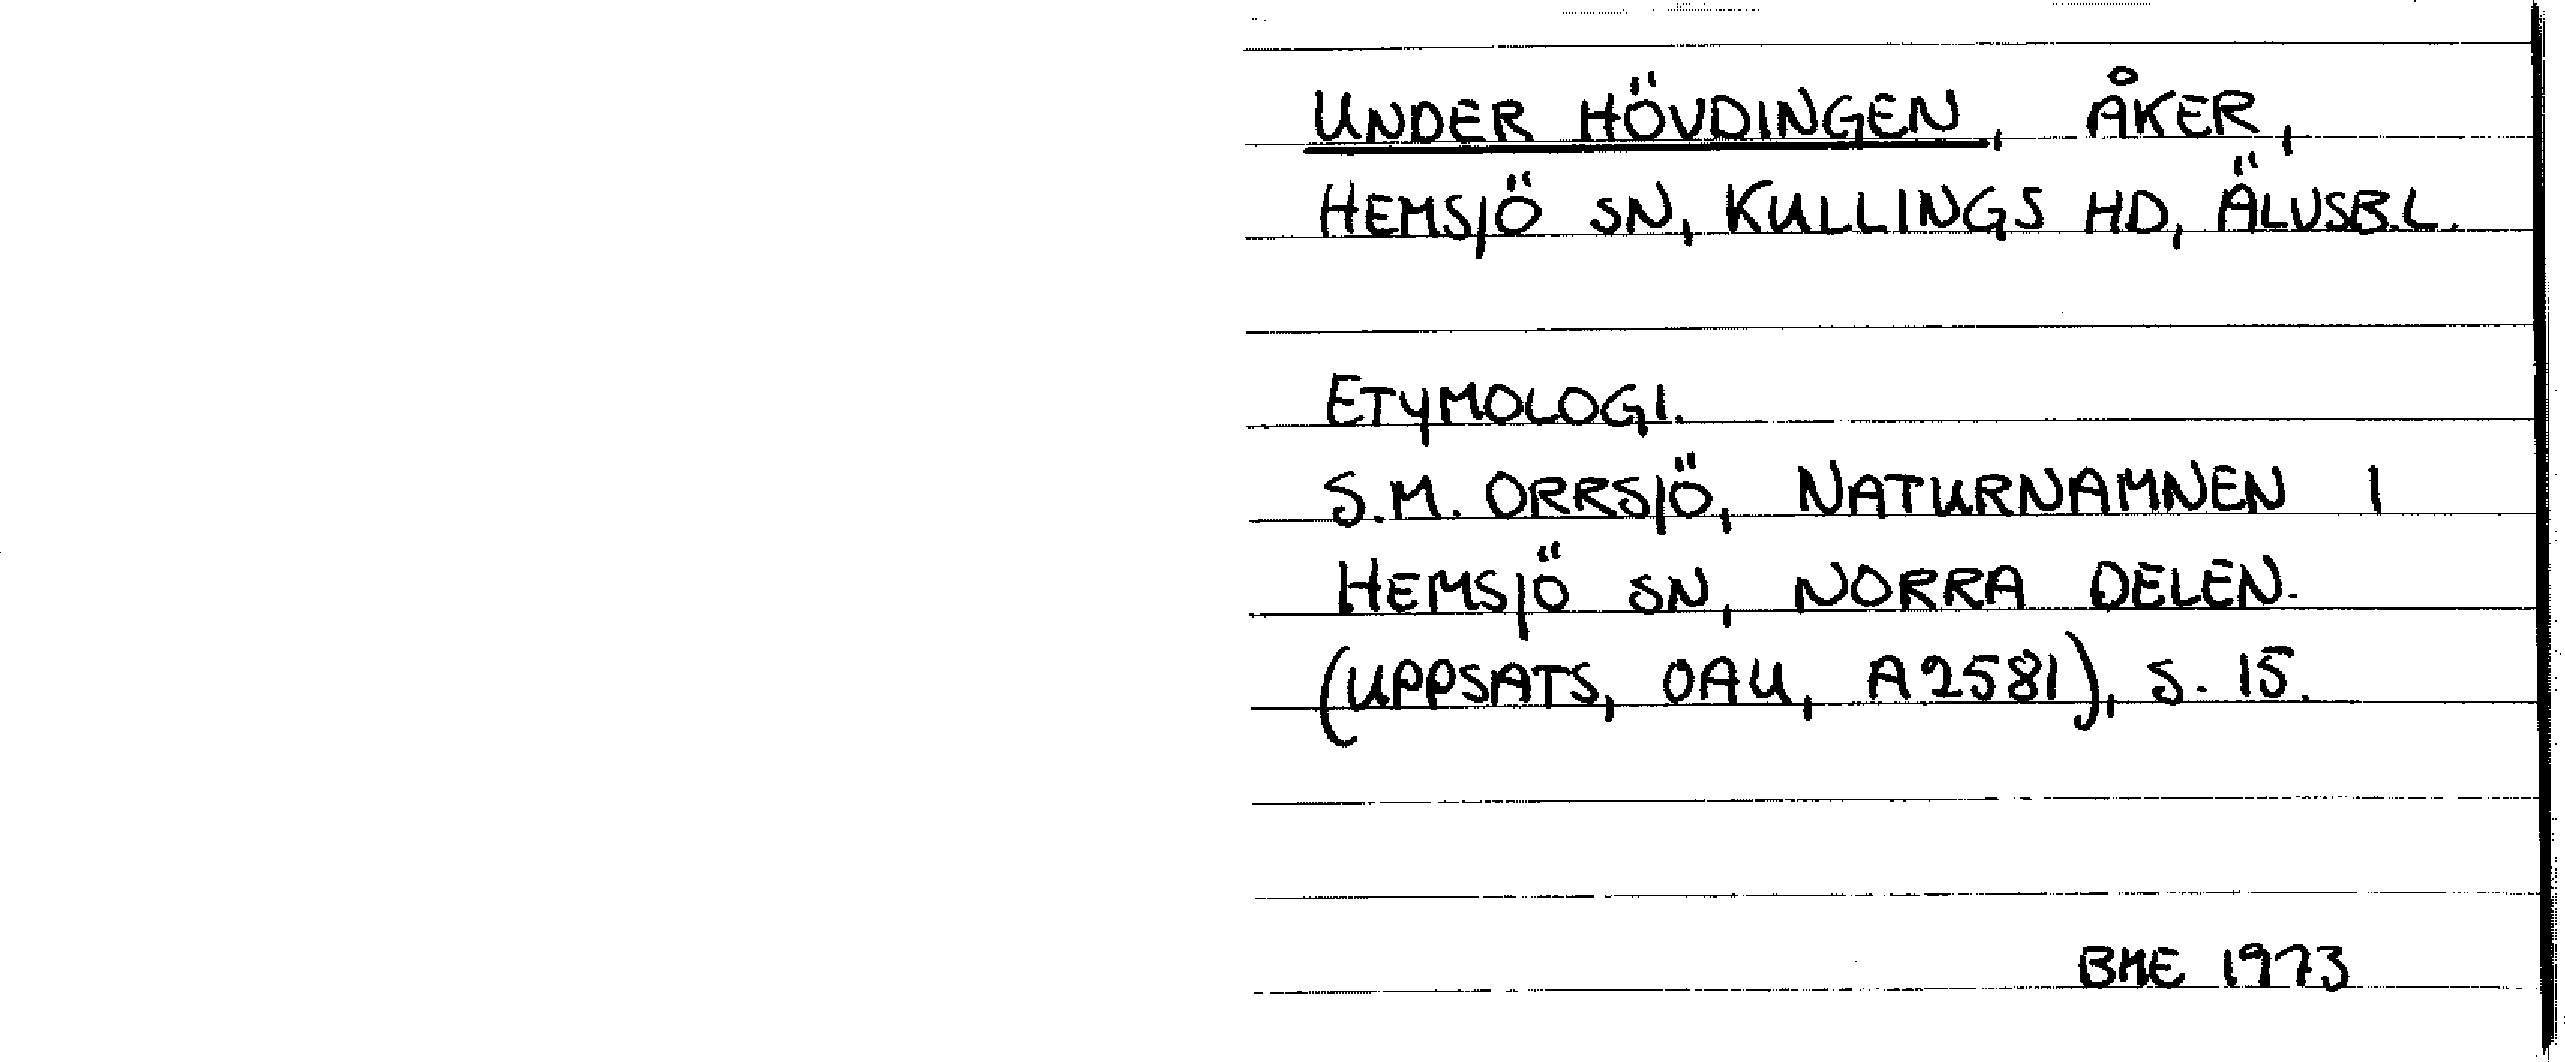 UNDER HÖVDINGEN, ÅKER,
HEMSJÖ SN, KULLINGS HD, ÄLVSB.L.
ETYMOLOGI.
S.M. ORRSJÖ, NATURNAMNEN I
HEMSJÖ SN, NORRA DELEN.
(UPPSATS, OAU, A2581), S. 15.
BME 1973